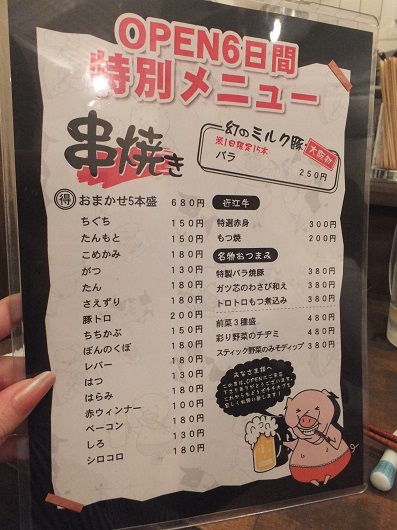 OPEN6日間
特別メニュー
串焼き
得 おまかせ5本盛 680円
ちぐち 150円
たんもと 150円
こめかみ 180円
がつ 130円
たん 180円
さえずり 180円
豚トロ 200円
ちちかぶ 150円
ぼんのくぼ 180円
レバー 180円
はつ 130円
はらみ 180円
赤ウィンナー 100円
ベーコン 180円
しろ 130円
シロコロ 180円
幻のミルク豚
大阪初
※1日限定15本
バラ 250円
近江牛
特選赤身 300円
もつ焼 200円
名物おつまみ
特製バラ焼豚 380円
ガツ芯のわさび和え 380円
トロトロもつ煮込み 380円
前菜3種盛 480円
彩り野菜のチヂミ 480円
スティック野菜のみそディップ 380円
みなさま様へ
この度は、OPENにご来店
下さりありがとうございます。
これからもよろしく
お願い致します!